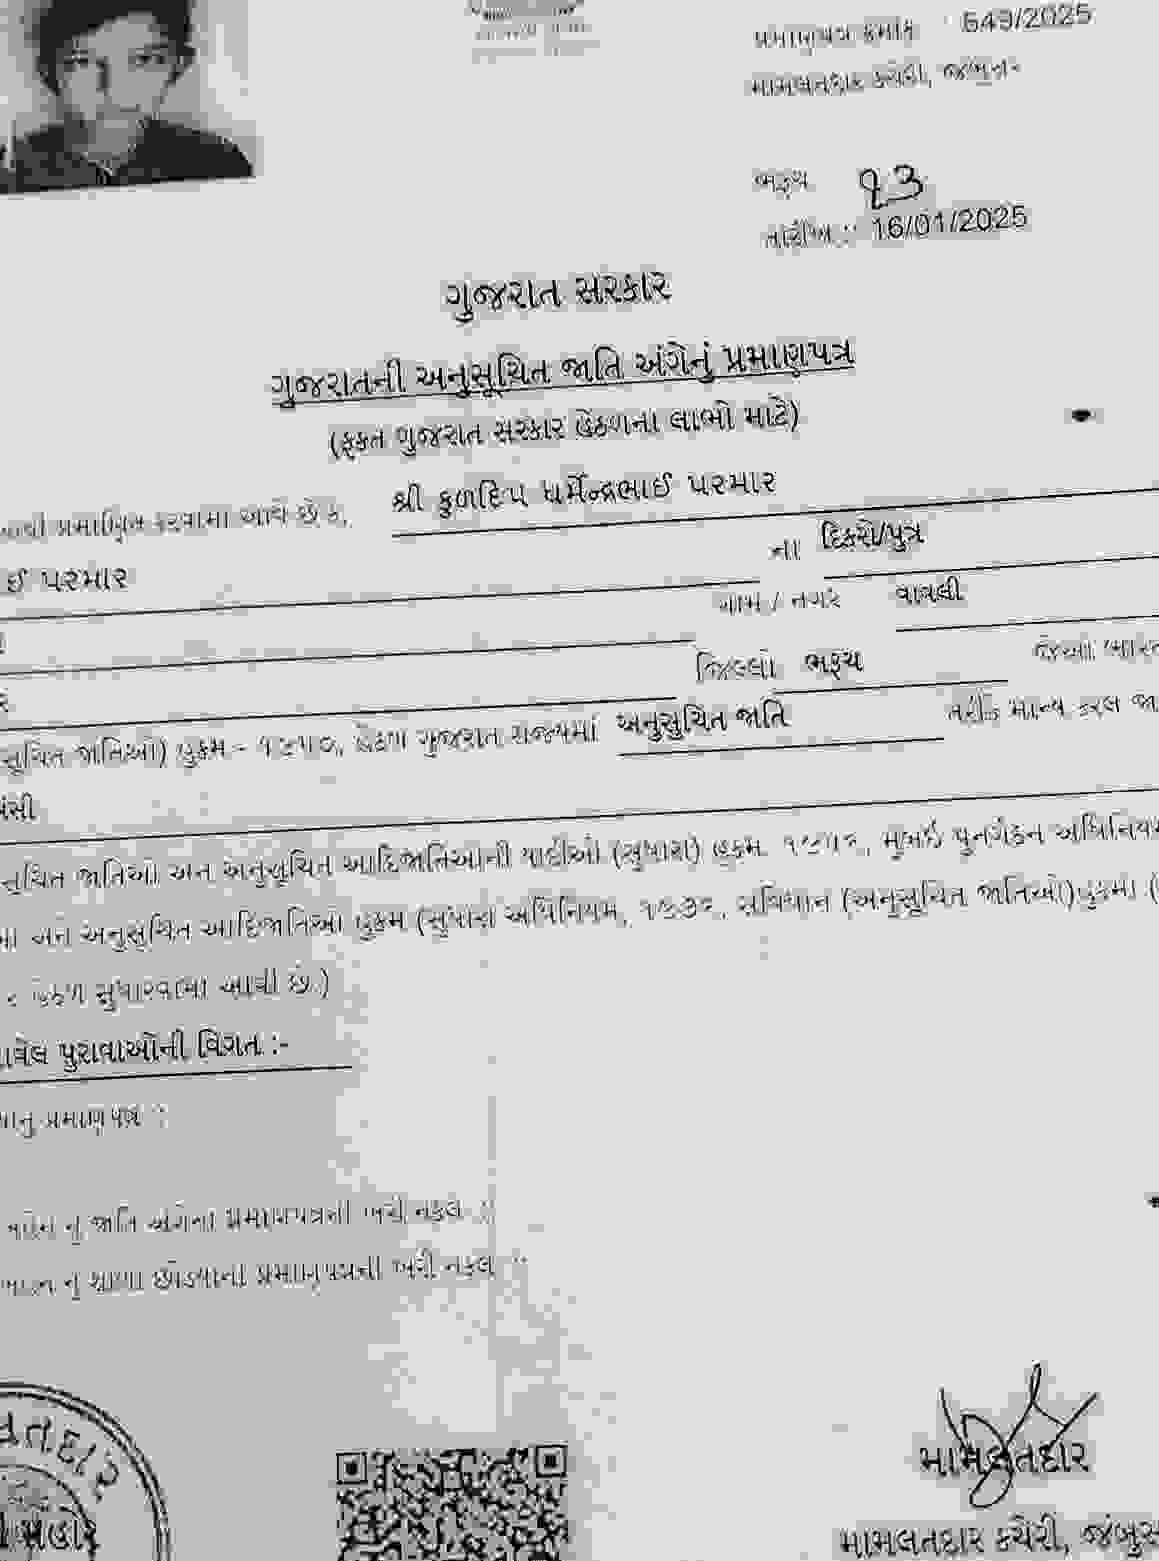 પ્રમાણપત્ર ક્રમાંક : 549/2025
મામલતદાર કચેરી, જંબુસર
ભરૂચ
૧૩
તારીખ :: 16/01/2025
ગુજરાત સરકાર
ગુજરાતની અનુસૂચિત જાતિ અંગેનું પ્રમાણપત્ર
(ફક્ત ગુજરાત સરકાર હેઠળના લાભો માટે)
આથી પ્રમાણિત કરવામાં આવે છે કે, શ્રી કુળદિપ ધર્મેન્દ્રભાઈ પરમાર
ઈ પરમાર ના દિકરો/પુત્ર
ગામ / નગર વાવલી
જિલ્લો ભરૂચ જેઓ ભારત
સૂચિત જાતિઓ) હુકમ - ૧૯૫૦, હેઠળ ગુજરાત રાજ્યમાં અનુસુચિત જાતિ તરીકે માન્ય કરેલ જા
વંસી
સૂચિત જાતિઓ અને અનુસૂચિત આદિજાતિઓની યાદીઓ (સુધારા) હુકમ, ૧૯૫૬, મુંબઈ પુનર્ગઠન અધિનિયમ
અને અનુસૂચિત આદિજાતિઓ હુકમ (સુધારા અધિનિયમ, ૧૯૭૬, સંવિધાન (અનુસૂચિત જાતિઓ) હુકમો (
હેઠળ સુધારવામાં આવી છે.)
પુરાવાઓની વિગત :-
પ્રમાણપત્ર ::
નુ જાતિ અંગેના પ્રમાણપત્રની ખરી નકલ ::
નુ શાળા છોડયાના પ્રમાણપત્રની ખરી નકલ ::
મામલતદાર
મામલતદાર કચેરી, જંબુસ